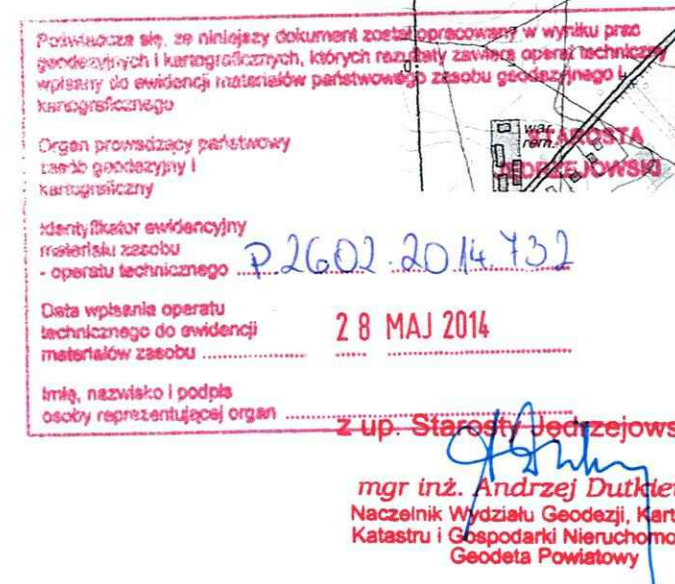 Poświadcza się, że niniejszy dokument został opracowany w wyniku prac
geodezyjnych i kartograficznych, których rezultaty zawiera operat techniczny
wpisany do ewidencji materiałów państwowego zasobu geodezyjnego i
kartograficznego
Organ prowadzący państwowy
zasób geodezyjny i
kartograficzny
war.
rem.
STAROSTA
JĘDRZEJOWSKI
Identyfikator ewidencyjny
materiału zasobu
- operatu technicznego P.2602.2014.732
Data wpisania operatu
technicznego do ewidencji
materiałów zasobu 28 MAJ 2014
Imię, nazwisko i podpis
osoby reprezentującej organ
z up. Starosty Jędrzejows
mgr inż. Andrzej Dutkie
Naczelnik Wydziału Geodezji, Kart
Katastru i Gospodarki Nieruchomo
Geodeta Powiatowy